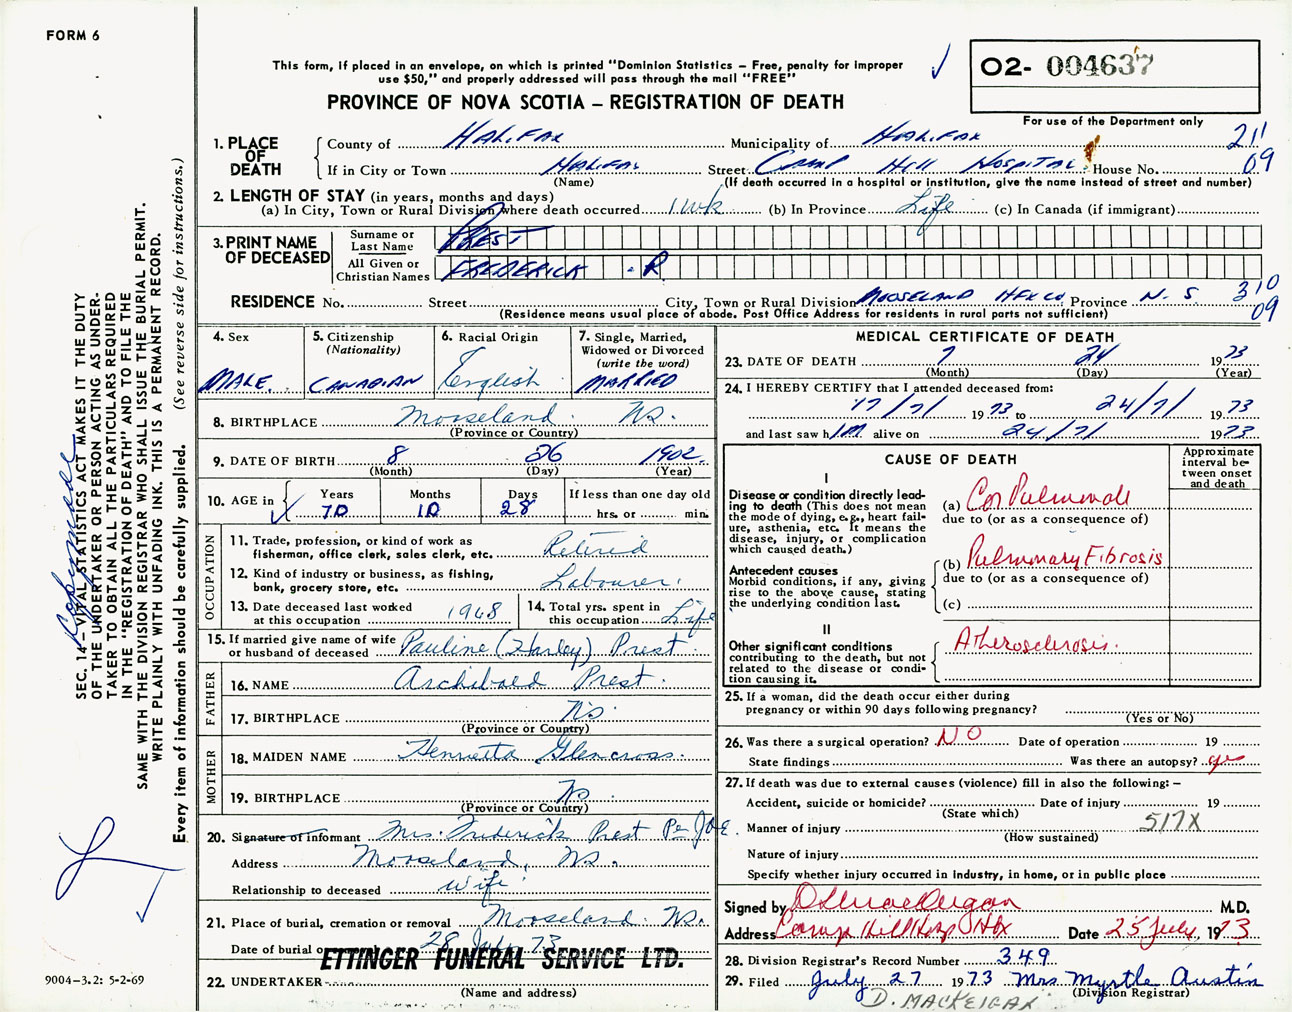 FORM 6
This form, if placed in an envelope, on which is printed "Dominion Statistics – Free, penalty for improper
use $50," and properly addressed will pass through the mail "FREE"
PROVINCE OF NOVA SCOTIA – REGISTRATION OF DEATH
O2- 004637
For use of the Department only
1. PLACE OF DEATH
County of HALIFAX Municipality of HALIFAX 211
If in City or Town HALIFAX Street CAMP HILL HOSPITAL House No. 09
(Name) (If death occurred in a hospital or institution, give the name instead of street and number)
2. LENGTH OF STAY (in years, months and days)
(a) In City, Town or Rural Division where death occurred 1 wk (b) In Province Life (c) In Canada (if immigrant)
3. PRINT NAME OF DECEASED
Surname or Last Name PREST
All Given or Christian Names FREDERICK . R
RESIDENCE No. Street City, Town or Rural Division MOOSELAND HFX CO Province N. S 310
(Residence means usual place of abode. Post Office Address for residents in rural parts not sufficient) 09
4. Sex MALE.
5. Citizenship (Nationality) CANADIAN
6. Racial Origin English
7. Single, Married, Widowed or Divorced (write the word) MARRIED
8. BIRTHPLACE Mooseland. NS.
(Province or Country)
9. DATE OF BIRTH 8 26 1902.
(Month) (Day) (Year)
10. AGE in Years 70 Months 10 Days 28 If less than one day old
hrs. or min.
OCCUPATION
11. Trade, profession, or kind of work as fisherman, office clerk, sales clerk, etc. Retired
12. Kind of industry or business, as fishing, bank, grocery store, etc. Labourer.
13. Date deceased last worked at this occupation 1968
14. Total yrs. spent in this occupation Life
15. If married give name of wife or husband of deceased Pauline (Hanley) Prest
FATHER
16. NAME Archibald Prest.
17. BIRTHPLACE NS.
(Province or Country)
MOTHER
18. MAIDEN NAME Henrietta Glencross.
19. BIRTHPLACE NS
(Province or Country)
20. Signature of informant Mrs. Frederick Prest Per JOE.
Address Mooseland, NS.
Relationship to deceased wife
21. Place of burial, cremation or removal Mooseland. NS.
Date of burial or 28 July 73
ETTINGER FUNERAL SERVICE LTD.
22. UNDERTAKER
(Name and address)
MEDICAL CERTIFICATE OF DEATH
23. DATE OF DEATH 7 24 1973
(Month) (Day) (Year)
24. I HEREBY CERTIFY that I attended deceased from:
17/7/ 1973 to 24/7/ 1973
and last saw hIM alive on 24/7/ 1973
CAUSE OF DEATH
Approximate interval between onset and death
I
Disease or condition directly leading to death (This does not mean the mode of dying, e.g., heart failure, asthenia, etc. It means the disease, injury, or complication which caused death.)
(a) Cor Pulmonale
due to (or as a consequence of)
Antecedent causes
Morbid conditions, if any, giving rise to the above cause, stating the underlying condition last.
(b) Pulmonary Fibrosis
due to (or as a consequence of)
(c)
II
Other significant conditions
contributing to the death, but not related to the disease or condition causing it.
Atherosclerosis.
25. If a woman, did the death occur either during
pregnancy or within 90 days following pregnancy?
(Yes or No)
26. Was there a surgical operation? NO Date of operation 19
State findings Was there an autopsy? yes
27. If death was due to external causes (violence) fill in also the following: –
Accident, suicide or homicide? Date of injury 19
(State which)
Manner of injury 517X
(How sustained)
Nature of injury
Specify whether injury occurred in industry, in home, or in public place
Signed by D L MacKeigan M.D.
Address Camp Hill Hosp Hfx Date 25 July, 1973
28. Division Registrar's Record Number 349
29. Filed July 27 1973 Mrs Myrtle Austin
(Division Registrar)
D. MACKEIGAN
SEC. 14 – VITAL STATISTICS ACT MAKES IT THE DUTY
OF THE UNDERTAKER OR PERSON ACTING AS UNDER-
TAKER TO OBTAIN ALL THE PARTICULARS REQUIRED
IN THE "REGISTRATION OF DEATH" AND TO FILE THE
SAME WITH THE DIVISION REGISTRAR WHO SHALL ISSUE THE BURIAL PERMIT.
WRITE PLAINLY WITH UNFADING INK. THIS IS A PERMANENT RECORD.
Every item of information should be carefully supplied. (See reverse side for instructions.)
9004-3.2: 5-2-69